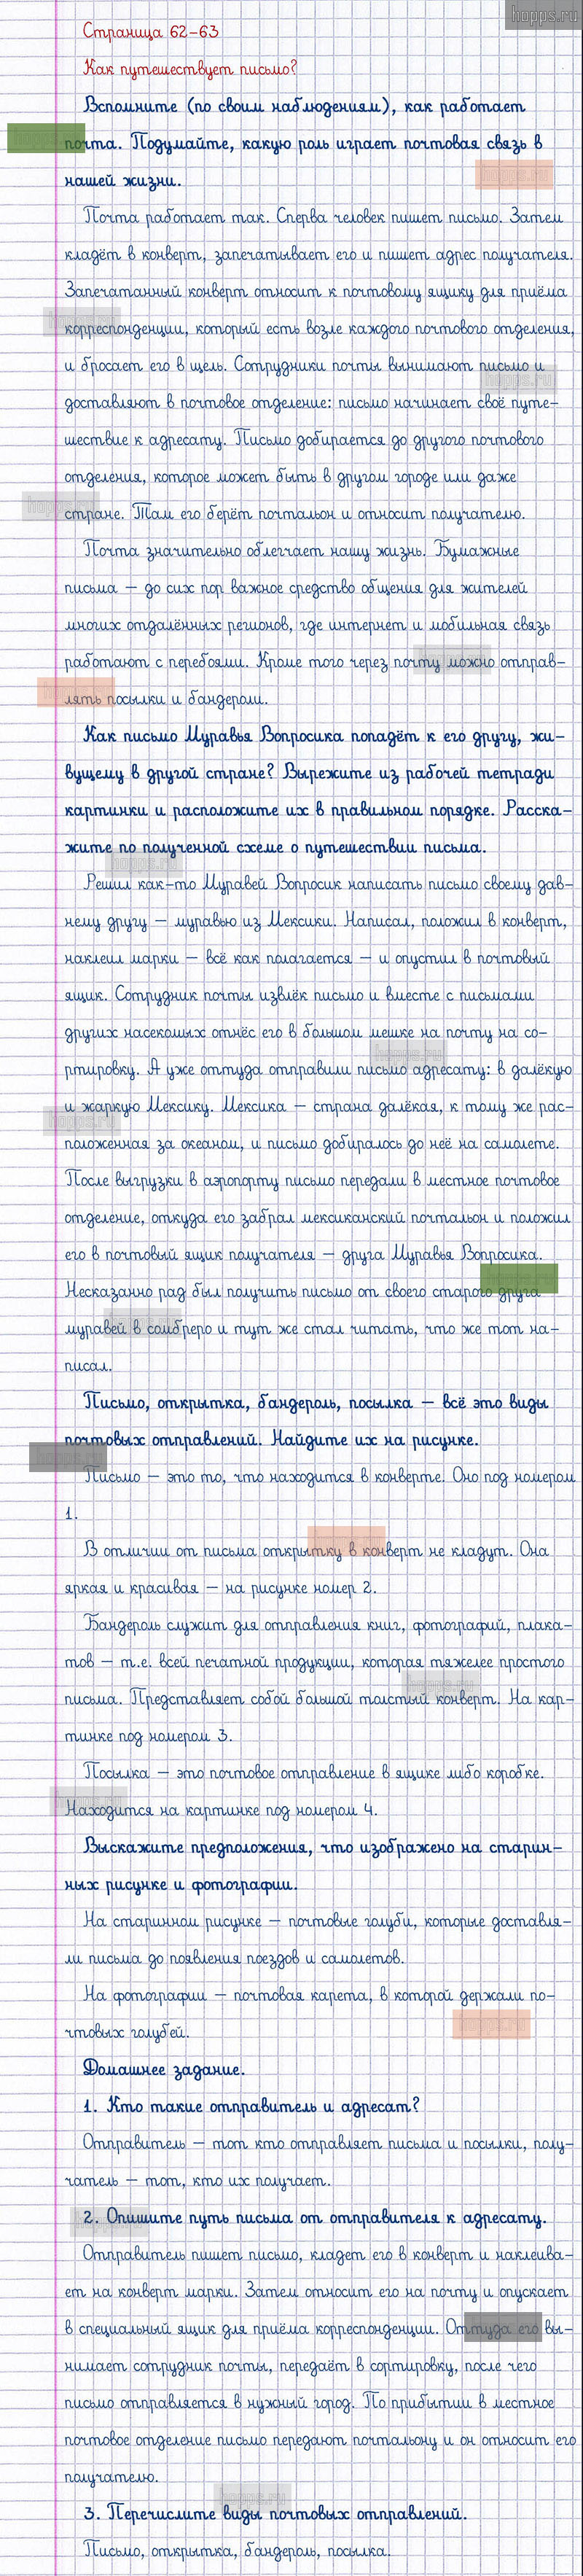 hopps.ru
Страница 62-63
Как путешествует письмо?
Вспомните (по своим наблюдениям), как работает
почта. Подумайте, какую роль играет почтовая связь в
нашей жизни.
Почта работает так. Сперва человек пишет письмо. Затем
кладёт в конверт, запечатывает его и пишет адрес получателя.
Запечатанный конверт относит к почтовому ящику для приёма
корреспонденции, который есть возле каждого почтового отделения,
и бросает его в щель. Сотрудники почты вынимают письмо и
доставляют в почтовое отделение: письмо начинает своё путе-
шествие к адресату. Письмо добирается до другого почтового
отделения, которое может быть в другом городе или даже
стране. Там его берёт почтальон и относит получателю.
Почта значительно облегчает нашу жизнь. Бумажные
письма – до сих пор важное средство общения для жителей
многих отдалённых регионов, где интернет и мобильная связь
работают с перебоями. Кроме того через почту можно отправ-
лять посылки и бандероли.
Как письмо Муравья Вопросика попадёт к его другу, жи-
вущему в другой стране? Вырежите из рабочей тетради
картинки и расположите их в правильном порядке. Расска-
жите по полученной схеме о путешествии письма.
Решил как-то Муравей Вопросик написать письмо своему дав-
нему другу – муравью из Мексики. Написал, положил в конверт,
наклеил марки – всё как полагается – и опустил в почтовый
ящик. Сотрудник почты извлёк письмо и вместе с письмами
других насекомых отнёс его в большом мешке на почту на со-
ртировку. А уже оттуда отправили письмо адресату: в далёкую
и жаркую Мексику. Мексика – страна далёкая, к тому же рас-
положенная за океаном, и письмо добиралось до неё на самолете.
После выгрузки в аэропорту письмо передали в местное почтовое
отделение, откуда его забрал мексиканский почтальон и положил
его в почтовый ящик получателя – друга Муравья Вопросика.
Несказанно рад был получить письмо от своего старого друга
муравей в сомбреро и тут же стал читать, что же тот на-
писал.
Письмо, открытка, бандероль, посылка – всё это виды
почтовых отправлений. Найдите их на рисунке.
Письмо – это то, что находится в конверте. Оно под номером
1.
В отличии от письма открытку в конверт не кладут. Она
яркая и красивая – на рисунке номер 2.
Бандероль служит для отправления книг, фотографий, плака-
тов – т.е. всей печатной продукции, которая тяжелее простого
письма. Представляет собой большой толстый конверт. На кар-
тинке под номером 3.
Посылка – это почтовое отправление в ящике либо коробке.
Находится на картинке под номером 4.
Выскажите предположения, что изображено на старин-
ных рисунке и фотографии.
На старинном рисунке – почтовые голуби, которые доставля-
ли письма до появления поездов и самолетов.
На фотографии – почтовая карета, в которой держали по-
чтовых голубей.
Домашнее задание.
1. Кто такие отправитель и адресат?
Отправитель – тот кто отправляет письма и посылки, полу-
чатель – тот, кто их получает.
2. Опишите путь письма от отправителя к адресату.
Отправитель пишет письмо, кладет его в конверт и наклеива-
ет на конверт марки. Затем относит его на почту и опускает
в специальный ящик для приёма корреспонденции. Оттуда его вы-
нимает сотрудник почты, передаёт в сортировку, после чего
письмо отправляется в нужный город. По прибытии в местное
почтовое отделение письмо передают почтальону и он относит его
получателю.
3. Перечислите виды почтовых отправлений.
Письмо, открытка, бандероль, посылка.